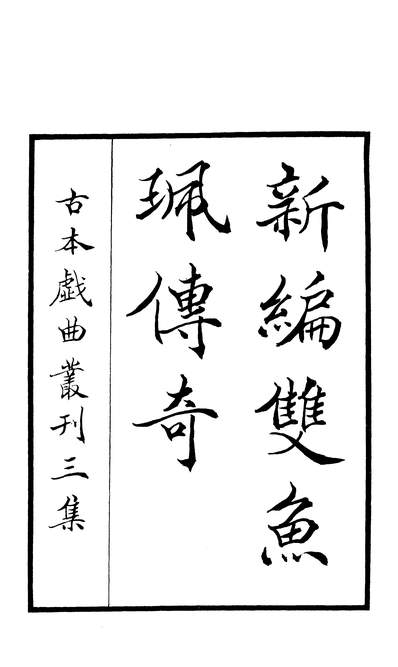 新編雙魚
珮傳奇
古本戲曲叢刊三集